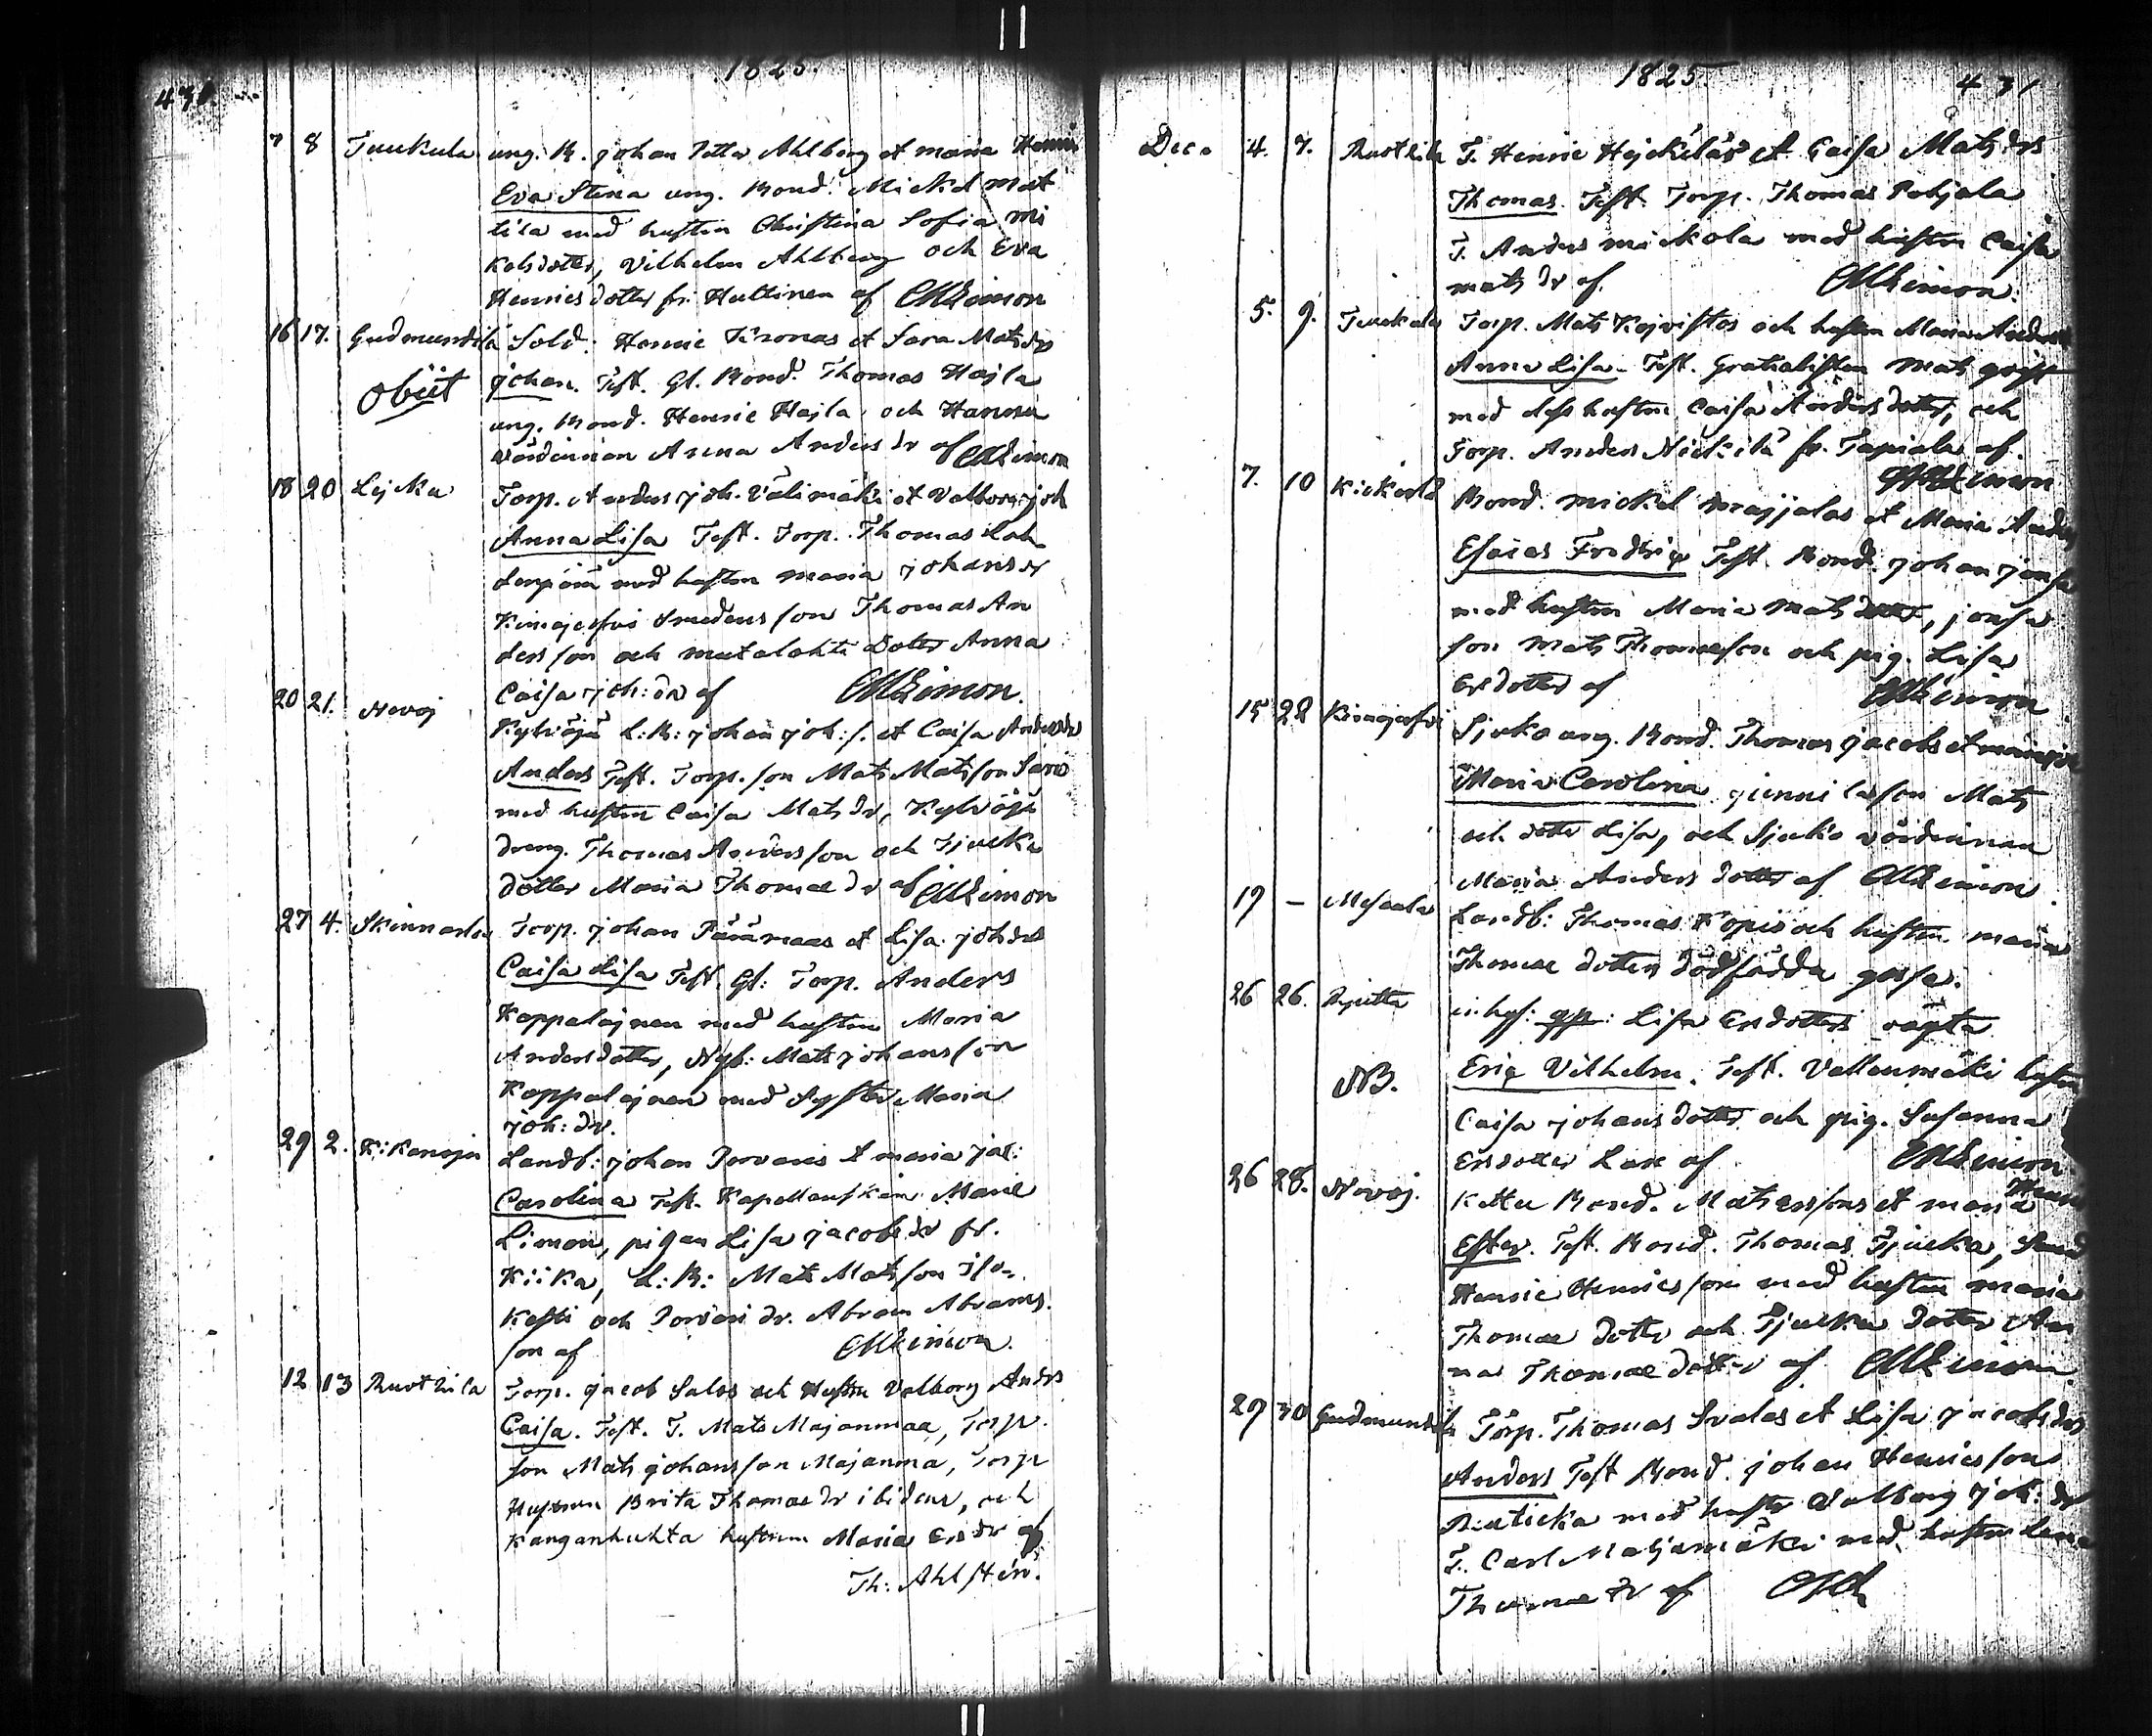 1825.
430
7 8 Tuukula ung. B. johan Petter Ahlberg et maria Henris
Eva Stina ung. Bond. Mickel mat
tila med hustru Christina Sofia mi
kelsdotter, Vilhelm Ahlberg och Eva
Henricsdotter fr. Huttinen af CMLimon
16 17. Gudmundila Sold: Henric Kronas et Sara Matsdr
obiit johan. Test. Gl. Bond. Thomas Hajla
ung. Bond. Henric Hajla och Hannu
värdinnan Anna Anders dr af CMLimon
18 20 Lejka Torp. Anders joh. Välimäki et Valborg joh
Anna Lisa Test. Torp. Thomas Lah
denpää med hustru maria johansdr
Smedens son Thomas An
ders son och dotter Anna
Caisa joh: dr af CMLimon.
20 21. Novoj Kylröjä L: B: johan joh: s. et Caisa Andersdr
Anders Test. Torp. son Mats Matsson
med hustru Caisa Mats dr, Kylröjä
dreng. Thomas Andersson och Tjucka
dotter Maria Thomae dr af CMLimon
27 4. Skinnarla Torp. johan Päämaas et Lisa johdrs
Caisa Lisa Test. Gl: Torp. Anders
Koppalajnen med hustru Maria
Andersdotter, Nyb: Mats johansson
Koppalajnen med Syster Maria
joh: dr.
29 2. Kikanoja Landb: johan Porvaris et maria jac:
Carolina Test. Kapellanskan Marie
Limon, pigan Lisa jacobs dr fr.
Kiika, L: B: Mats Matsson iso-
Kesti och Porvari dr. Abram Abrams
son af CMLimon.
12 13 Ruotzila Torp. jacob Salos och Hustru Valborg Andrs
Caisa. Test. T. Mats Majanmaa, Torp.
son Mats johansson Majanma, Torp
Hustrun Brita Thomae dr ibidem, och
Kanganhuhta hustrun Maria Ers dr af
Th: Ahlstén.
1825 431
Dec. 4. 7. Ruotzila T. Henric Hejckiläs et Caisa Mats drs
Thomas. Test. Torp. Thomas Pohjala
T. Anders mickola med hustru Caisa
mats dr af. CMLimon.
5. 9. Tuukula Torp. Mats Kojvistos och hustru Maria Anders
Anna Lisa. Test. Gratialisten Mats
med dess hustru Caisa Andersdotter, och
Torp. Anders Nickilä fr. Tapiala af.
CMLimon
7. 10 Kickerlä Bond. mickel et Maria Anders
Esaias Fredric Test. Bond. johan jonsa
med hustru Maria Matsdotter, jonsa
son Mats Thomasson och pig. Lisa
Ersdotter af CMLimon
15 22 Kingisfvi Sjuko ung. Bond. Thomas jacobs et maria
Maria Carolina, junnilason Mats
och dotter Lisa, och Sjuko värdinnan
Maria Anders dotter af CMLimon
19 – Mesaala Landb: Thomas Kopis och hustru maria
Thomae dotters dödfödda gosse.
26 26. inhys: qp: Lisa Ersdotters oägta
NB. Eriq Vilhelm. Test. Vallenmäki hustru
Caisa johansdotter och pig. Susanna
Ersdotter Lax af CMLimon
26 28. Novoj. Kittu Bond. Mats Erssons et maria Henr
Ester. Test. Bond. Thomas Tjucka, Smed
Henric Henricsson med hustru maria
Thomae dotter och Tjucka dotter An
na Thomae dotter af CMLimon.
29 30 Gudmundila Torp. Thomas Svalas et Lisa jacobsdrs
Anders Test Bond. johan Henricsson
Ruticka med hustru Valborg joh: dr
T. Carl Matjamäki med hustru Lena
Thomae dr af